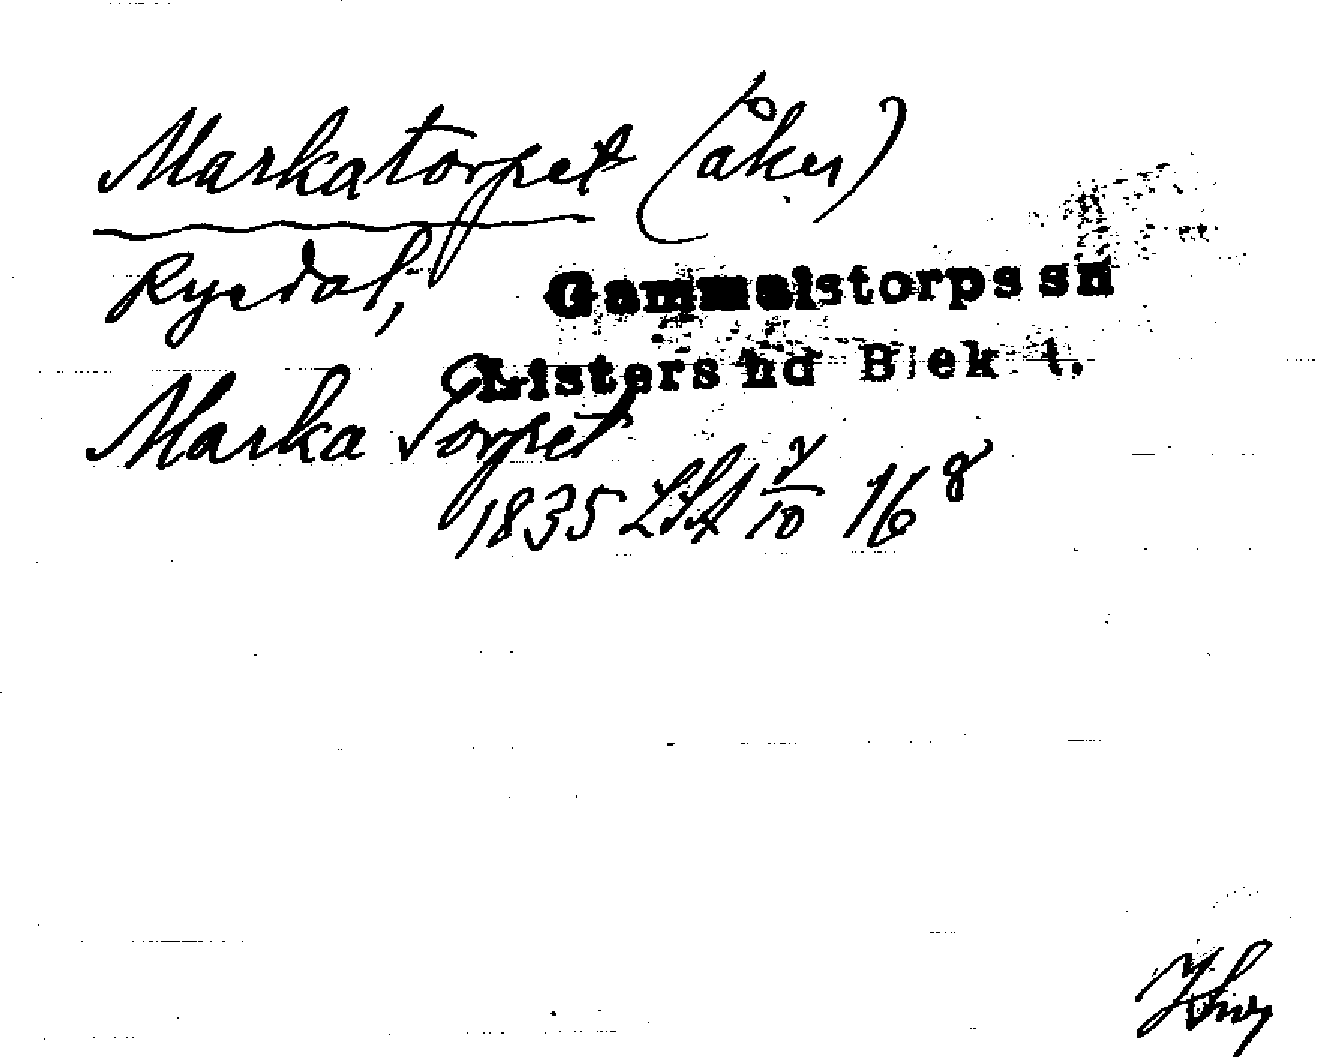 Markatorpet (åker)
Ryedal, Gammalstorps sn
Listers hd Blek. l.
Marka Torpet
1835 LSA 16